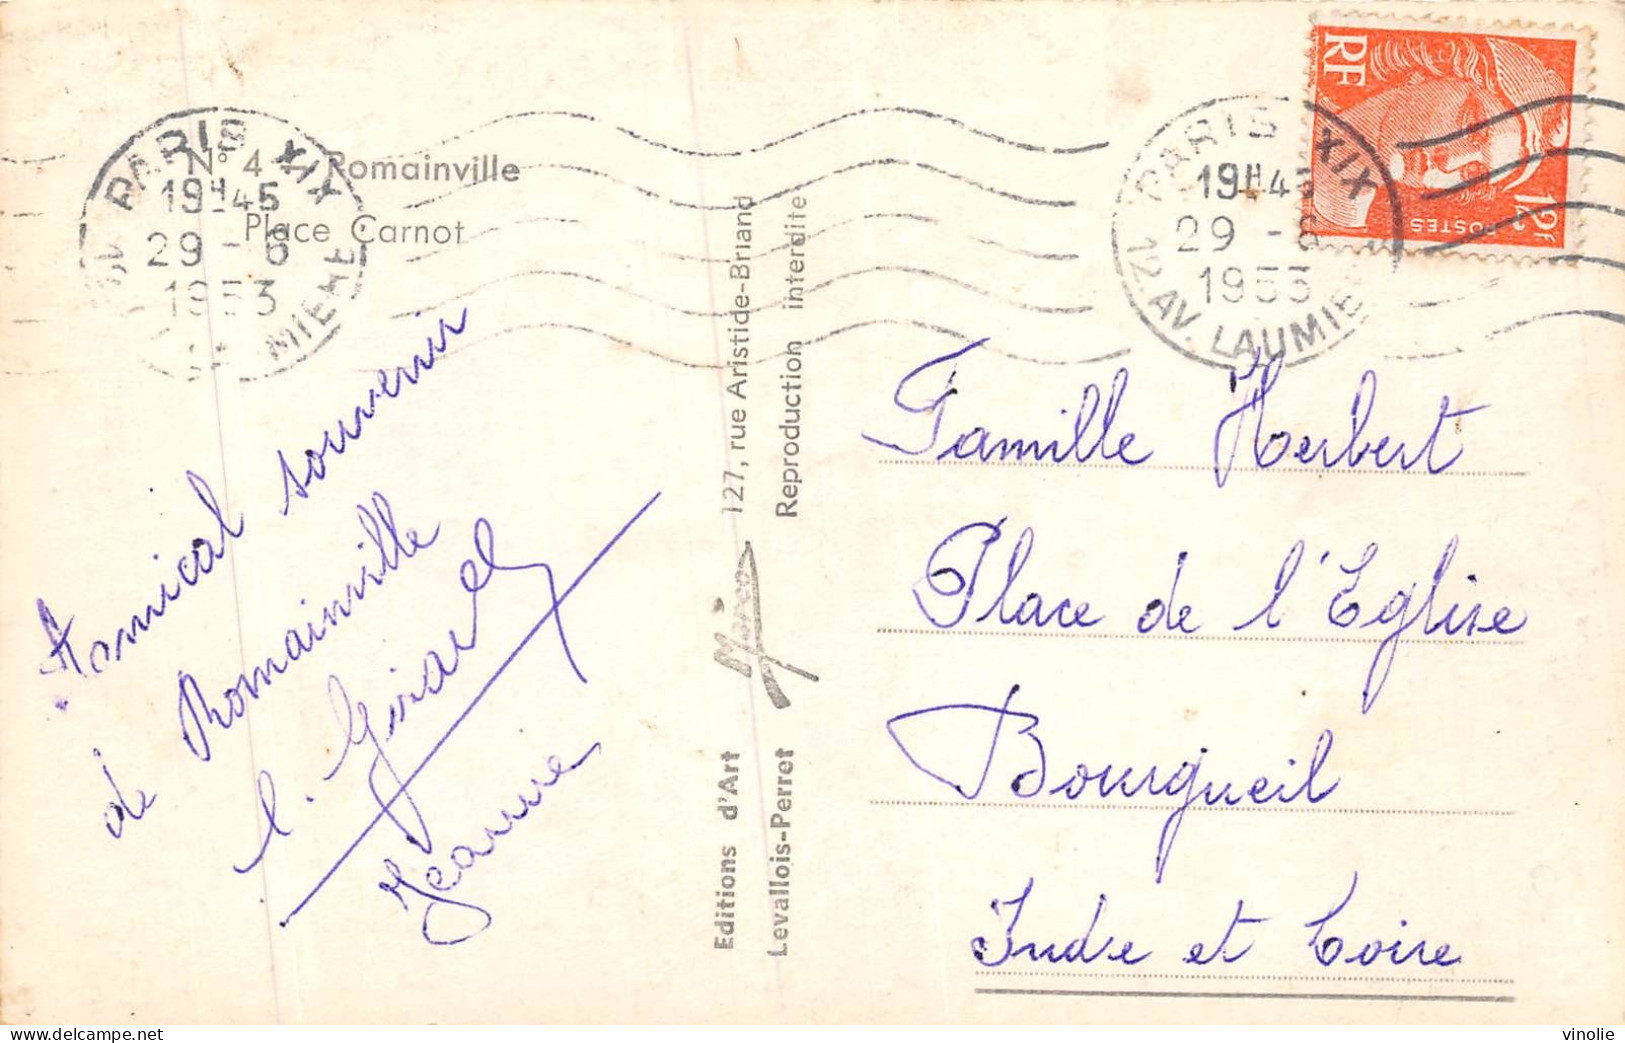 N° 4 - Romainville
Place Carnot
PARIS XIX
19H45
29 - 6
1953
PARIS XIX
19H45
29 - 6
1953
12 AV. LAUMIE
RF
POSTES
12F
Amical souvenir
de Romainville
l. Girard
Jeannine
Editions d'Art Miréo 127, rue Aristide-Briand
Levallois-Perret Reproduction interdite
Famille Herbert
Place de l'Eglise
Bourgueil
Indre et Loire
delcampe.net
vinolie